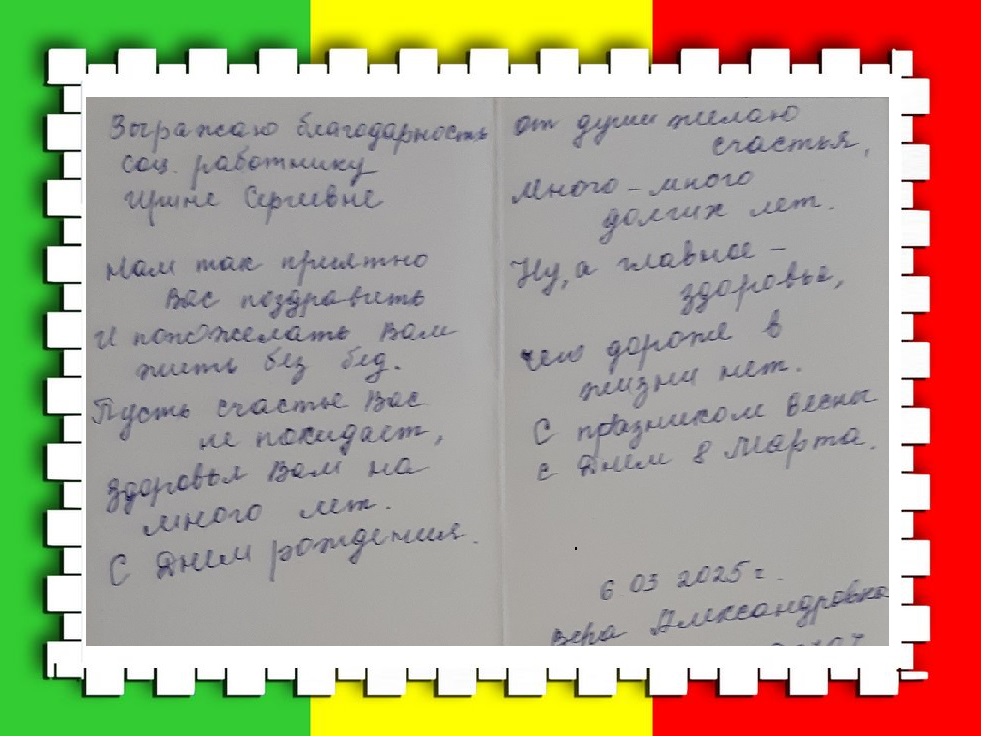 Выражаю благодарность
соц. работнику
Ирине Сергеевне
Нам так приятно
Вас поздравить
И попожелать Вам
жить без бед.
Пусть счастье Вас
не покидает,
Здоровья Вам на
много лет.
С Днем рождения.
от души желаю
счастья,
Много-много
долгих лет.
Ну, а главное -
здоровье,
чего дороже в
жизни нет.
С празником весны
с Днем 8 Марта.
6 03 2025 г.
Вера Александровна